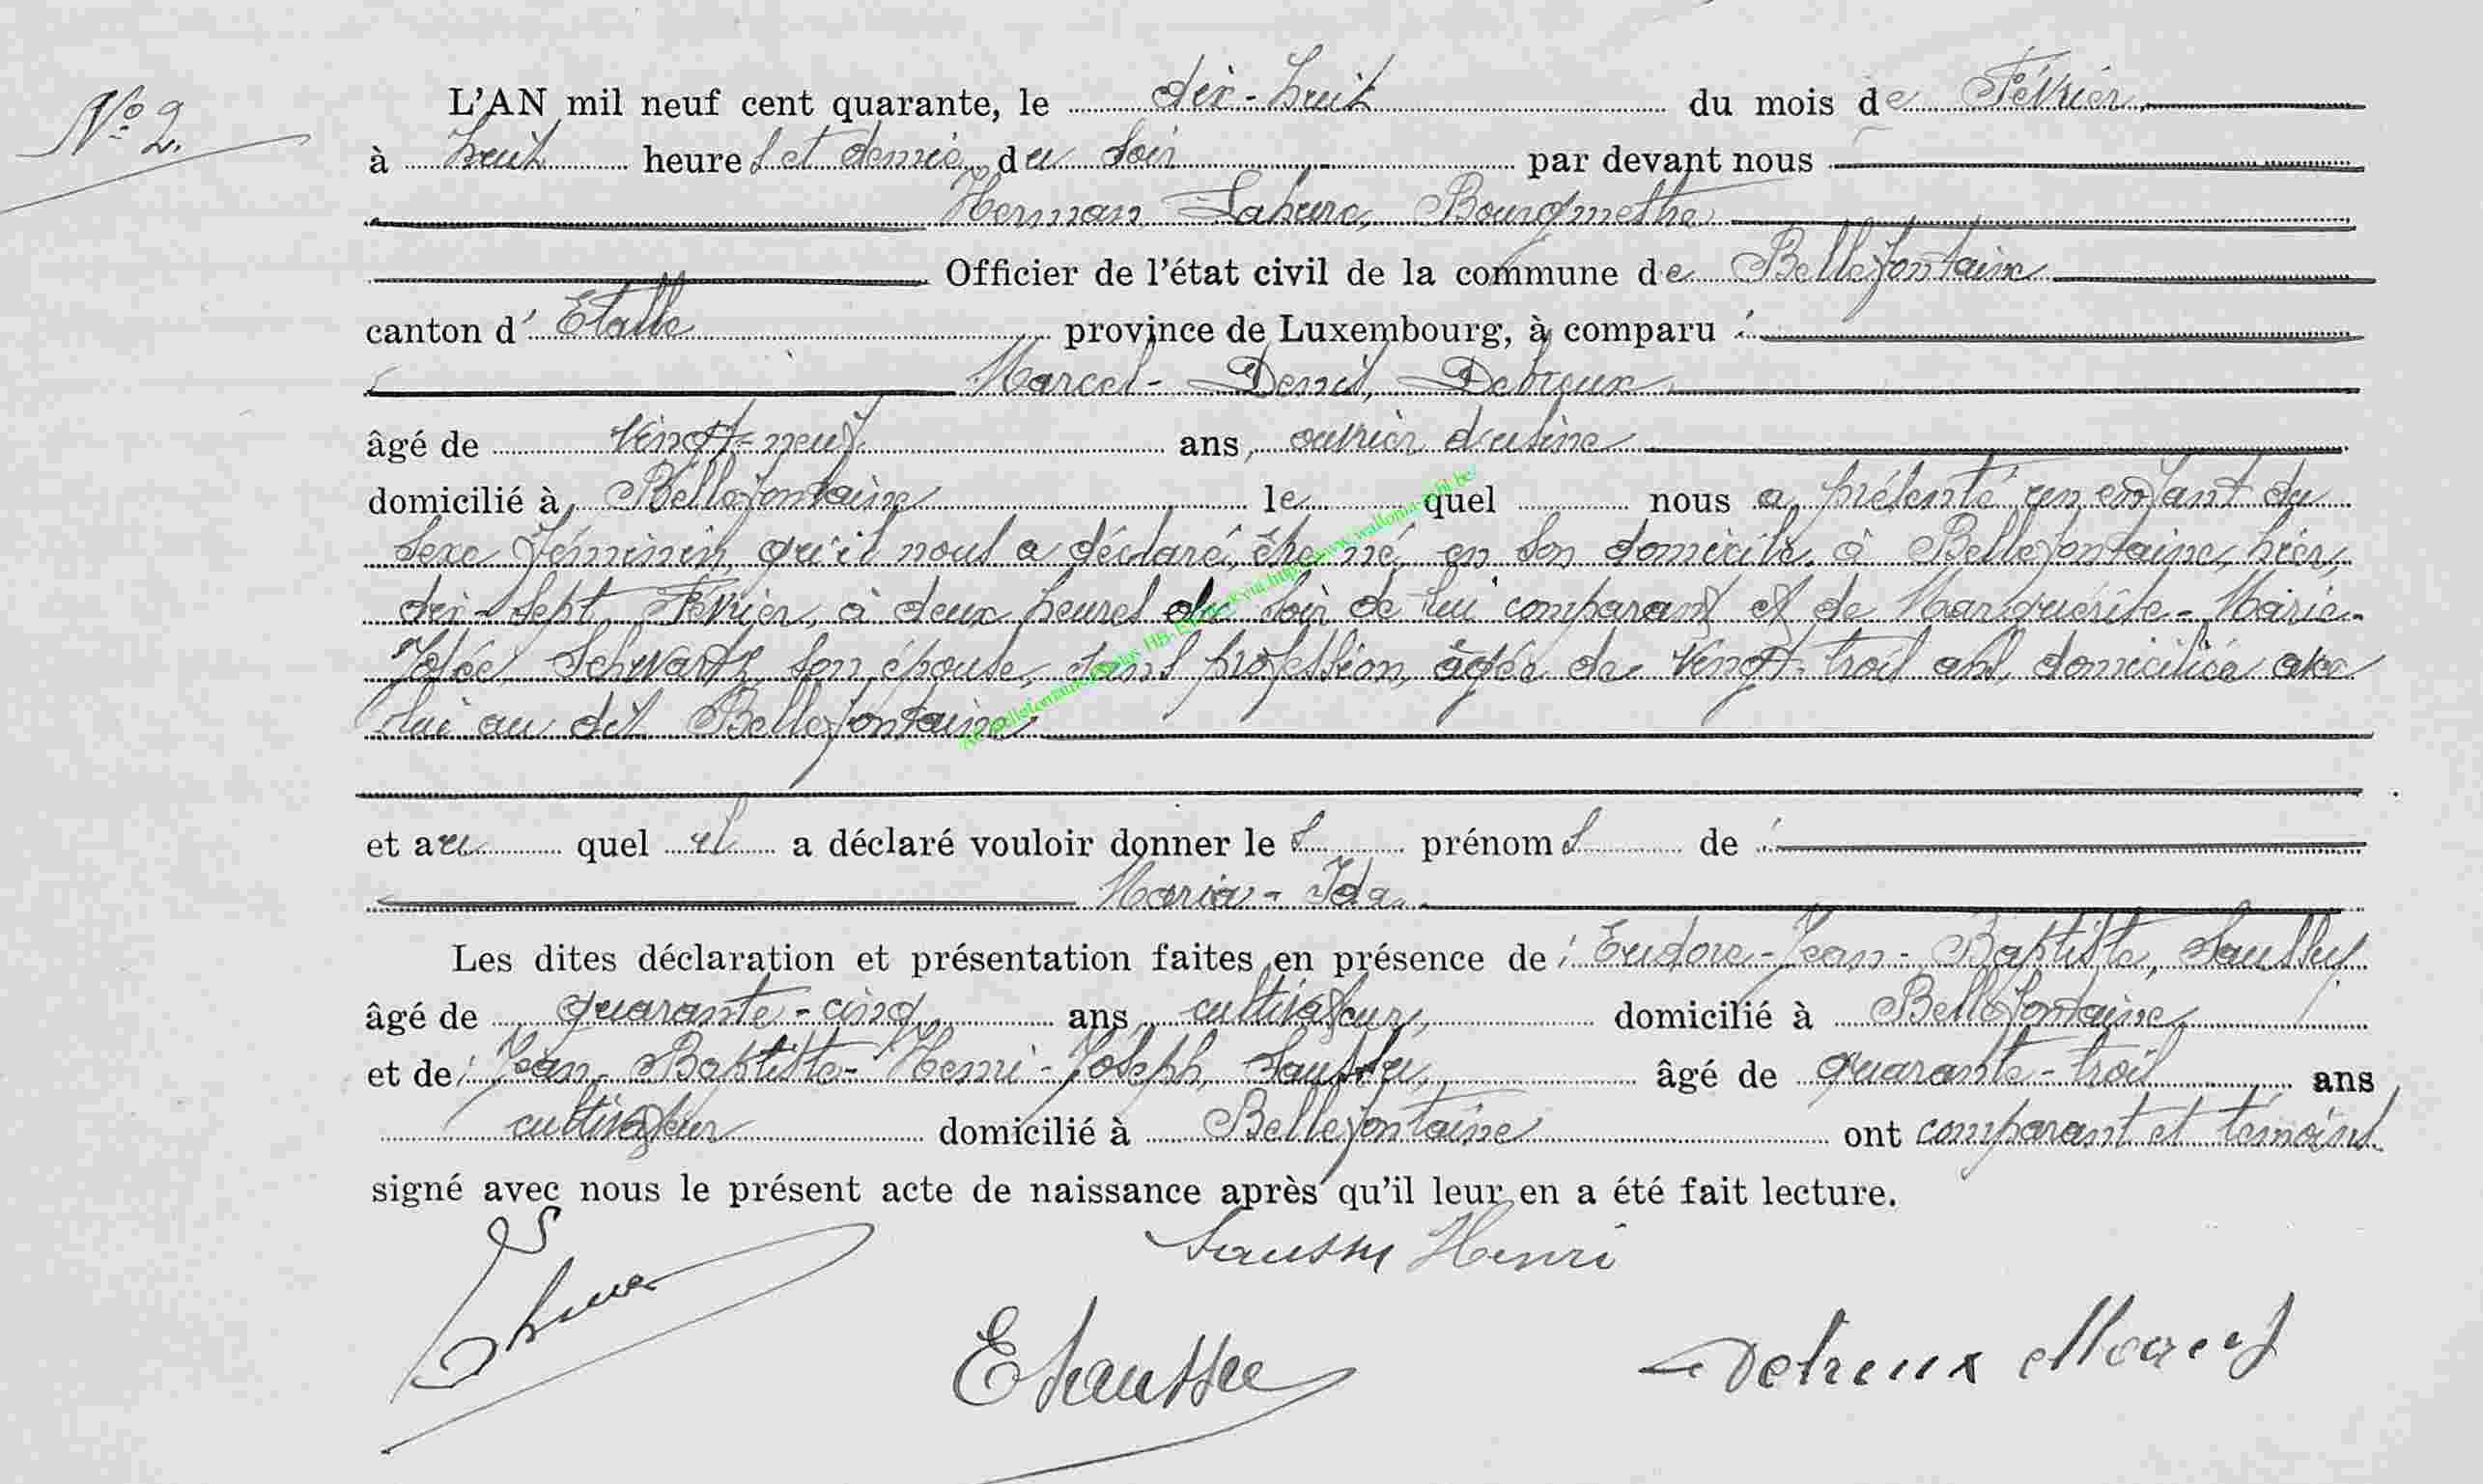 N° 2.
L'AN mil neuf cent quarante, le dix-huit du mois de Février,
à huit heures et demie du soir par devant nous
Herman Lahure, Bourgmestre
Officier de l'état civil de la commune de Bellefontaine
canton d'Etalle province de Luxembourg, à comparu :
Marcel-Denis, Debreux
âgé de vingt-neuf ans, ouvrier d'usine
domicilié à Bellefontaine lequel nous a présenté un enfant du
sexe féminin, qu'il nous a déclaré être né, en son domicile, à Bellefontaine, hier,
dix-sept Février, à deux heures du soir de lui comparant et de Marguérite-Marie-
Josée Schwartz, son épouse, sans profession, âgée de vingt-trois ans, domiciliée avec
lui au dit Bellefontaine
et au quel il a déclaré vouloir donner les prénoms de :
Maria-Ida.
Les dites déclaration et présentation faites en présence de : Eudore-Jean-Baptiste,
âgé de quarante-cinq ans, cultivateur, domicilié à Bellefontaine
et de : Jean-Baptiste-Henri-Joseph, âgé de quarante-trois ans
cultivateur domicilié à Bellefontaine ont comparant et témoins
signé avec nous le présent acte de naissance après qu'il leur en a été fait lecture.
Henri